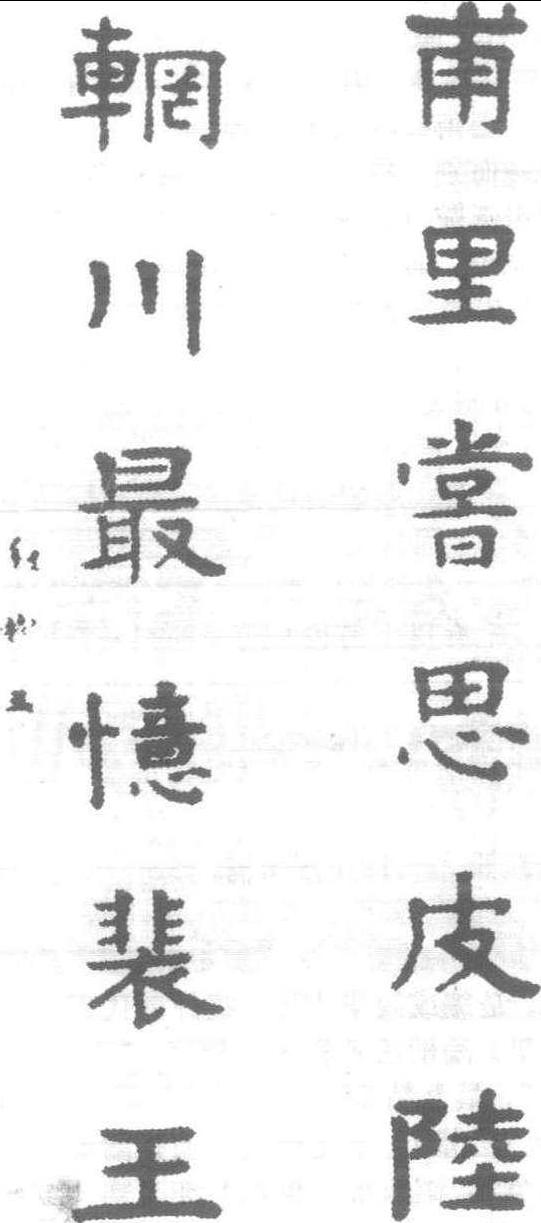 甫里嘗思皮陸
輞川最憶裴王